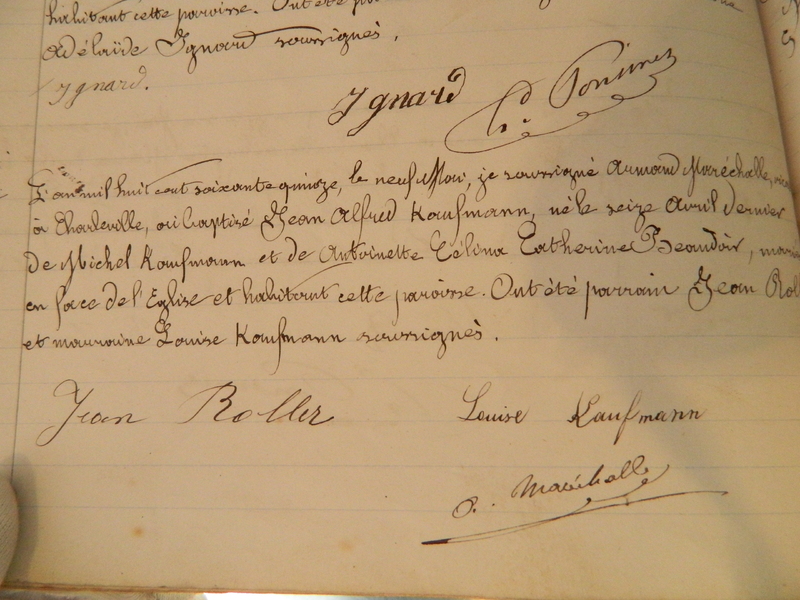 habitant cette paroisse. Ont été
Adélaïde Ignard soussignés.
Ignard.
Ignard
L'an mil huit cent soixante quinze, le neuf Mai, je soussigné Armand Maréchalle,
à Charleville, ai baptizé Jean Alfred Kaufmann, né le seize Avril dernier
de Michel Kaufmann et de Antoinette Célina Catherine Beaudoir,
en face de l'Eglise et habitant cette paroisse. Ont été parrain Jean Rol
et marraine Louise Kaufmann soussignés.
Jean Roller Louise Kaufmann
a. Maréchalle